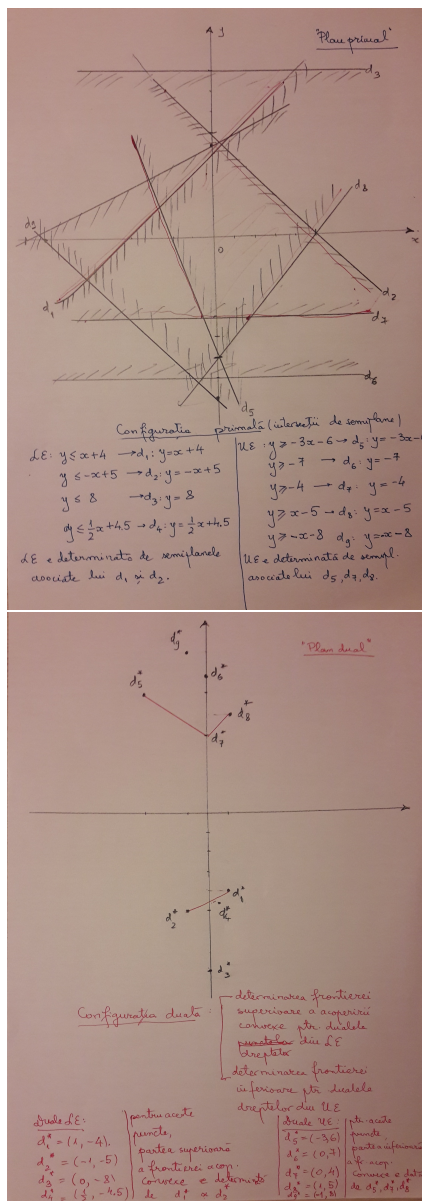 y
"Plan primal"
d3
d8
d9
x
0
d1
d2
d7
d6
d5
Configurația primală (intersecții de semiplane)
LE: y ≤ x+4 → d1: y = x+4
y ≤ -x+5 → d2: y = -x+5
y ≤ 8 → d3: y = 8
y ≤ 1/2 x + 4.5 → d4: y = 1/2 x + 4.5
LE e determinată de semiplanele
asociate lui d1 și d2.
UE: y ≥ -3x-6 → d5: y = -3x-6
y ≥ -7 → d6: y = -7
y ≥ -4 → d7: y = -4
y ≥ x-5 → d8: y = x-5
y ≥ -x-8 d9: y = -x-8
UE e determinată de semipl.
asociate lui d5, d7, d8.
"Plan dual"
d9*
d6*
d5*
d8*
d7*
d1*
d4*
d2*
d3*
Configurația duală:
determinarea frontierei
superioare a acoperirii
convexe ptr. dualele
punctelor din LE
dreptelor
determinarea frontierei
inferioare ptr. dualele
dreptelor din UE
Duale LE:
d1* = (1, -4).
d2* = (-1, -5)
d3* = (0, -8)
d4* = (1/2, -4.5)
pentru aceste
puncte,
partea superioară
a frontierei acop.
convexe e determinată
de d1* și d2*
Duale UE:
d5* = (-3, 6)
d6* = (0, 7)
d7* = (0, 4)
d8* = (1, 5)
ptr. aceste
puncte,
partea inferioară
a fr. acop.
convexe e det.
de d5*, d7*, d8*